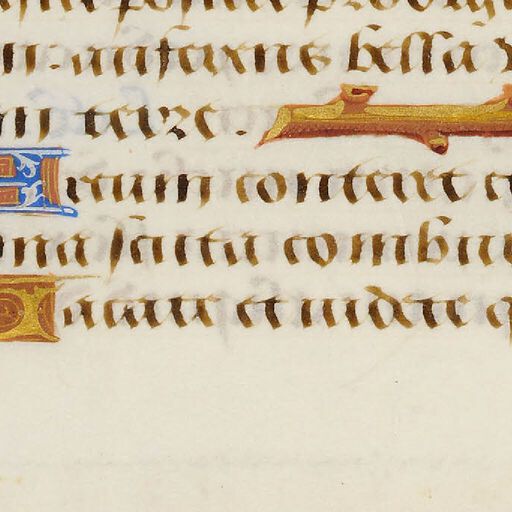 posuit prodigi
m: auferens bella v
m terre.
Arcum conteret c
ma scuta combu
Vacate et videte q